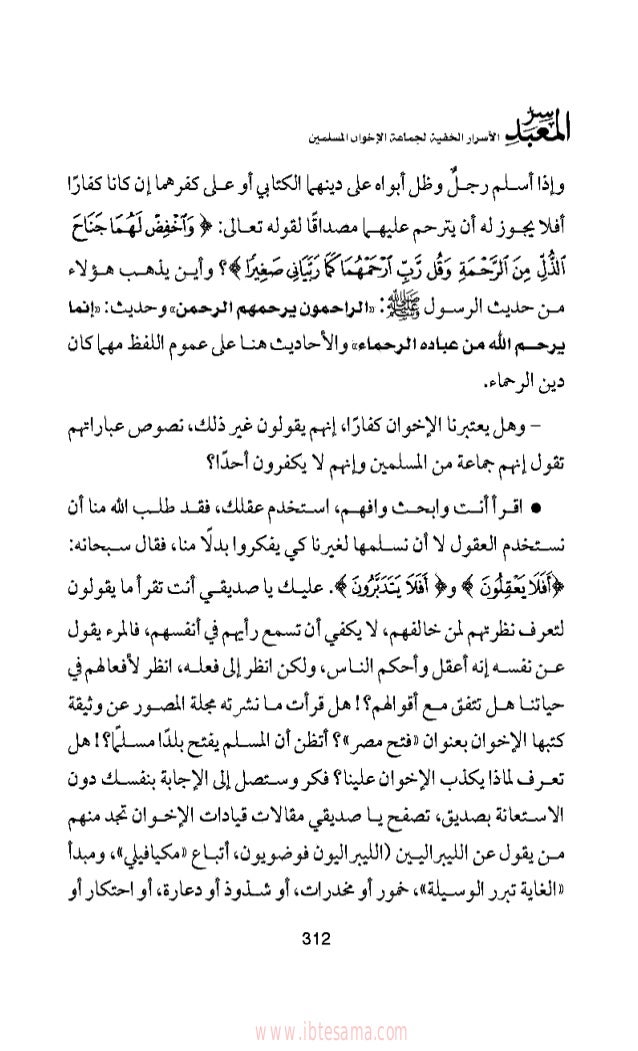 سر المعبد الأسرار الخفية لجماعة الإخوان المسلمين
وإذا أسلم رجلٌ وظل أبواه على دينهما الكتابي أو على كفرهما إن كانا كفارًا
أفلا يجوز له أن يترحم عليهما مصداقًا لقوله تعالى: ﴿ وَٱخْفِضْ لَهُمَا جَنَاحَ
ٱلذُّلِّ مِنَ ٱلرَّحْمَةِ وَقُل رَّبِّ ٱرْحَمْهُمَا كَمَا رَبَّيَانِى صَغِيرًا ﴾؟ وأين يذهب هؤلاء
من حديث الرسول ﷺ: «الراحمون يرحمهم الرحمن» وحديث: «إنما
يرحم الله من عباده الرحماء» والأحاديث هنا على عموم اللفظ مهما كان
دين الرحماء.
– وهل يعتبرنا الإخوان كفارًا، إنهم يقولون غير ذلك، نصوص عباراتهم
تقول إنهم جماعة من المسلمين وإنهم لا يكفرون أحدًا؟
● اقرأ أنت وابحث وافهم، استخدم عقلك، فقد طلب الله منا أن
نستخدم العقول لا أن نسلمها لغيرنا كي يفكروا بدلًا منا، فقال سبحانه:
﴿أَفَلَا يَعْقِلُونَ ﴾ و﴿ أَفَلَا يَتَدَبَّرُونَ ﴾. عليك يا صديقي أنت تقرأ ما يقولون
لتعرف نظرتهم لمن خالفهم، لا يكفي أن تسمع رأيهم في أنفسهم، فالمرء يقول
عن نفسه إنه أعقل وأحكم الناس، ولكن انظر إلى فعله، انظر لأفعالهم في
حياتنا هل تتفق مع أقوالهم؟! هل قرأت ما نشرته مجلة المصور عن وثيقة
كتبها الإخوان بعنوان «فتح مصر»؟ أتظن أن المسلم يفتح بلدًا مسلمًا؟! هل
تعرف لماذا يكذب الإخوان علينا؟ فكر وستصل إلى الإجابة بنفسك دون
الاستعانة بصديق، تصفح يا صديقي مقالات قيادات الإخوان تجد منهم
من يقول عن الليبراليين (الليبراليون فوضويون، أتباع «مكيافيلي»، ومبدأ
«الغاية تبرر الوسيلة»، خمور أو مخدرات، أو شذوذ أو دعارة، أو احتكار أو
312
www.ibtesama.com